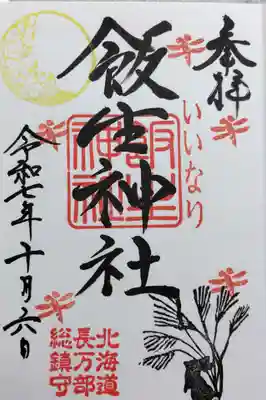 奉拝
いいなり
飯生神社
令和七年十月六日
北海道
長万部
総鎮守